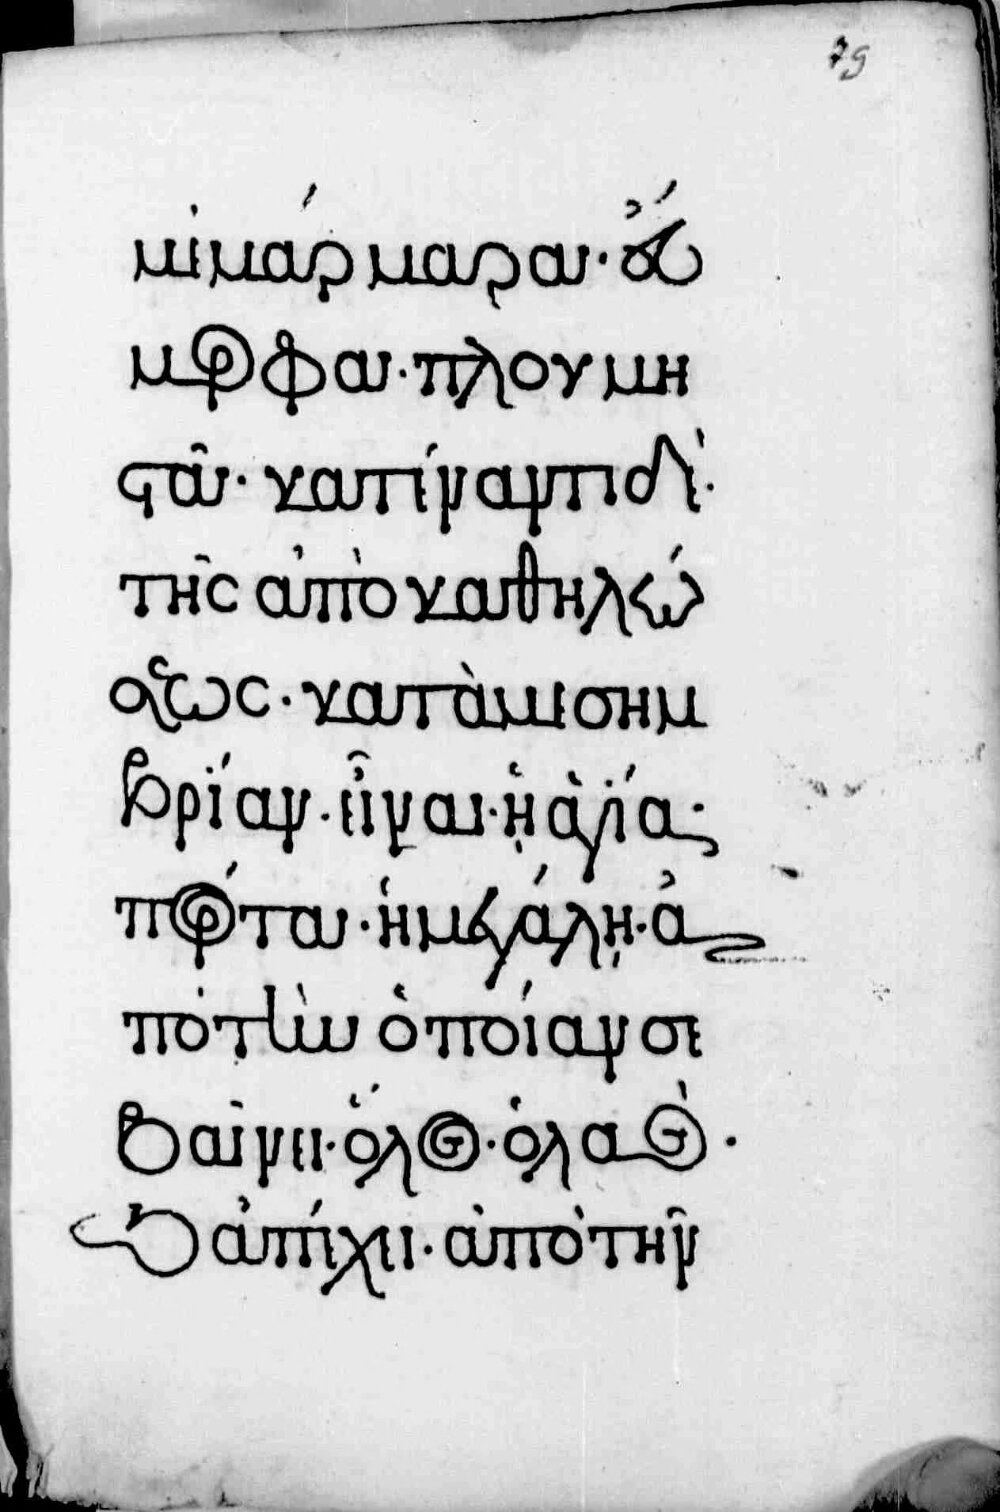 79
μὲ μάρμαρα· εὔ
μορφα· πλουμη
στᾶ· κατέναντι δὲ·
τῆς ἀποκαθηλώ
σεως· κατὰ μεσημ
βρίαν· εἶναι· ἡ ἁγία·
πόρτα· ἡ μεγάλη· ἀ
πὸ τὴν ὁποίαν σε
βαίνει· ὅλος· ὁ λαὸς·
καὶ ἀπέχει· ἀπὸ τὴν